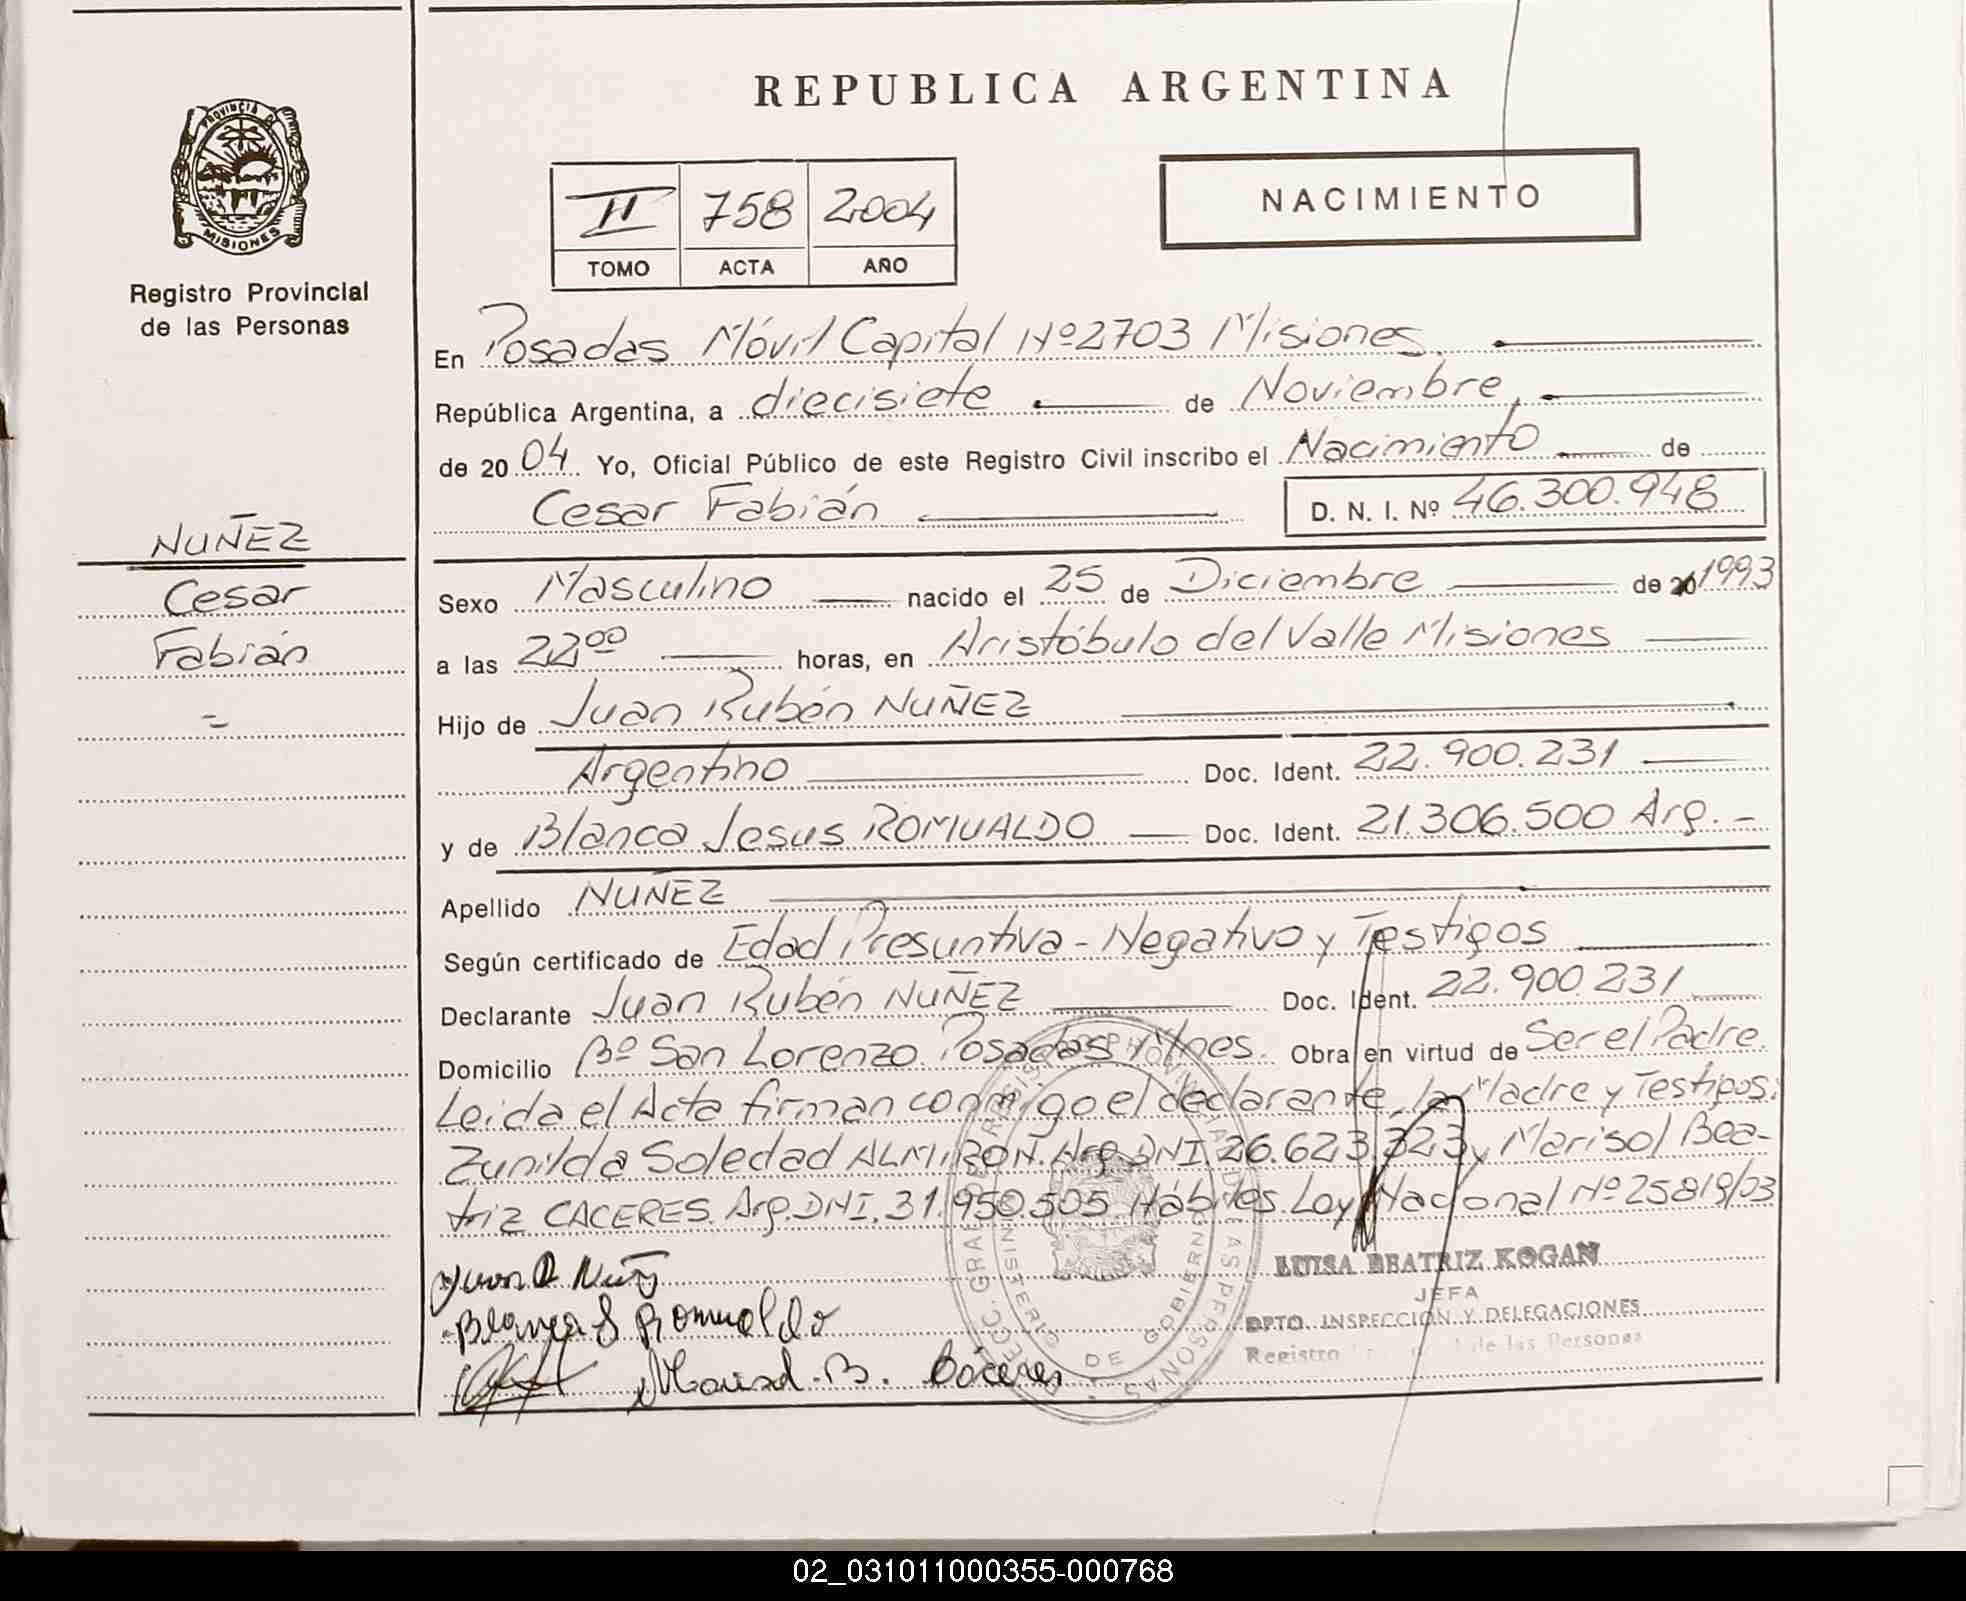 REPUBLICA ARGENTINA
PROVINCIA D
MISIONES
Registro Provincial
de las Personas
II 758 2004
TOMO ACTA AÑO
NACIMIENTO
En Posadas Móvil Capital Nº 2703 Misiones.
República Argentina, a diecisiete de Noviembre,
de 2004 Yo, Oficial Público de este Registro Civil inscribo el Nacimiento de
Cesar Fabián D. N. I. Nº 46.300.948
NUÑEZ
Cesar
Fabián
=
Sexo Masculino nacido el 25 de Diciembre de 20 1993
a las 22⁰⁰ horas, en Aristóbulo del Valle Misiones
Hijo de Juan Rubén NUÑEZ
Argentino Doc. Ident. 22.900.231
y de Blanca Jesus ROMUALDO Doc. Ident. 21.306.500 Arg. -
Apellido NUÑEZ
Según certificado de Edad Presuntiva - Negativo y Testigos
Declarante Juan Rubén NUÑEZ Doc. Ident. 22.900.231
Domicilio Bº San Lorenzo. Posadas Mnes. Obra en virtud de Ser el Padre.
Leida el Acta firman conmigo el declarante, la Madre y Testigos:
Zunilda Soledad ALMIRON. Arg. DNI 26.623.323 y Marisol Bea-
triz CACERES. Arg. DNI. 31.950.505 Hábiles. Ley Nacional Nº 25819/03
Juan R Nuñ
Blanca J Romualdo
Marisol. B. Cáceres
LUISA BEATRIZ KOGAN
JEFA
DPTO. INSPECCION Y DELEGACIONES
Registro de las Personas
MINISTERIO DE GOBIERNO
02_031011000355-000768